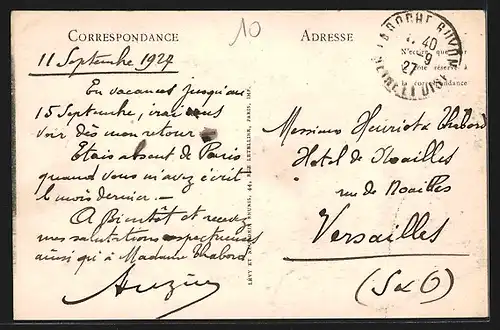 CORRESPONDANCE
ADRESSE
10
11 Septembre 1927
En vacances jusqu'au
15 Septembre, irai vous
voir dès mon retour
Etais absent de Paris
quand vous m'avez écrit
le mois dernier. —
A Bientôt et recevez
mes salutations respectueuses
ainsi qu'à Madame Chabord
LA ROCHE GUYON
40
9
27
SEINE ET OISE
N'écrire que sur
côté réservé à
la correspondance
LÉVY ET NEURDEIN RÉUNIS, 44, RUE LETELLIER, PARIS, IMP.
Messieurs Henriot & Chabord
Hotel de Noailles
rue de Noailles
Versailles
(S & O)